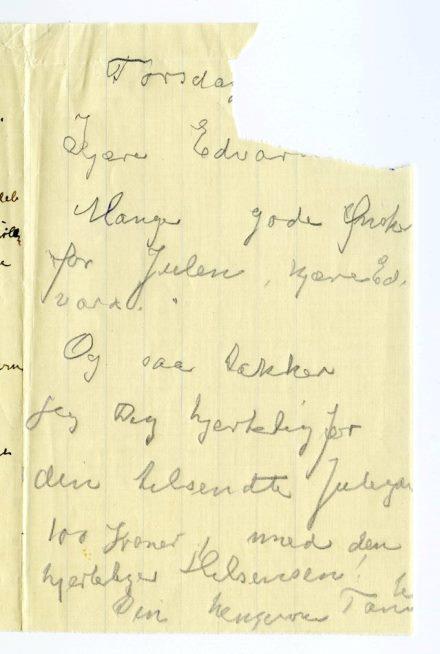 Torsda
Kjære Edvar
Mange gode Ønsker
for Julen, kjære Ed-
vard.
Og saa takker
jeg Dig hjertelig for
den tilsendte Julega
100 Kroner, med den
hjerteligst Hilsensen!
Din hengivne Tan